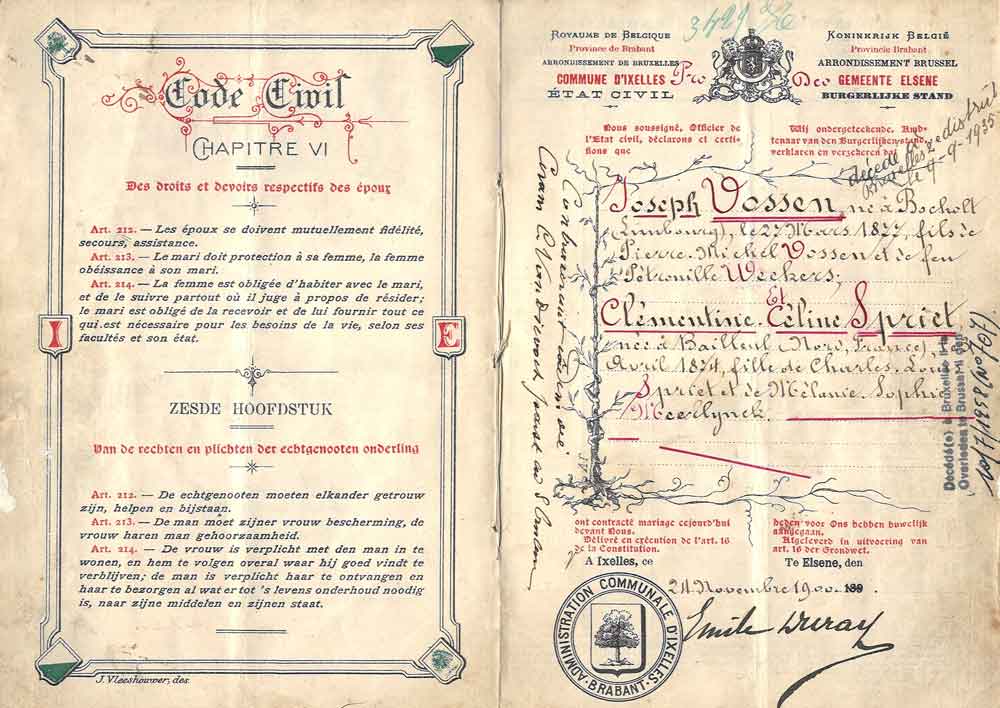 Code Civil
CHAPITRE VI
Des droits et devoirs respectifs des époux
Art. 212. — Les époux se doivent mutuellement fidélité,
secours, assistance.
Art. 213. — Le mari doit protection à sa femme, la femme
obéissance à son mari.
Art. 214. — La femme est obligée d'habiter avec le mari,
et de le suivre partout où il juge à propos de résider;
le mari est obligé de la recevoir et de lui fournir tout ce
qui est nécessaire pour les besoins de la vie, selon ses
facultés et son état.
I E
ZESDE HOOFDSTUK
Van de rechten en plichten der echtgenooten onderling
Art. 212. — De echtgenooten moeten elkander getrouw
zijn, helpen en bijstaan.
Art. 213. — De man moet zijner vrouw bescherming, de
vrouw haren man gehoorzaamheid.
Art. 214. — De vrouw is verplicht met den man in te
wonen, en hem te volgen overal waar hij goed vindt te
verblijven; de man is verplicht haar te ontvangen en
haar te bezorgen al wat er tot 's levens onderhoud noodig
is, naar zijne middelen en zijnen staat.
J. Vleeshouwer, des.
ROYAUME DE BELGIQUE
Province de Brabant
ARRONDISSEMENT DE BRUXELLES
COMMUNE D'IXELLES
ÉTAT CIVIL
Pro Deo
KONINKRIJK BELGIË
Provincie Brabant
ARRONDISSEMENT BRUSSEL
GEMEENTE ELSENE
BURGERLIJKE STAND
Nous soussigné, Officier de
l'Etat civil, déclarons et certi-
fions que
Wij ondergeteekende, Amb-
tenaar van den Burgerlijken stand,
verklaren en verzekeren dat
décédé
Bruxelles
le 4-9-1935
Joseph Vossen, né à Bocholt
(Limbourg), le 27 Mars 1877, fils de
Pierre Michel Vossen et de feu
Pétronille Weckers;
Et
Clémentine Céline Spriet
née à Bailleul (Nord, France), le
Avril 1874, fille de Charles Louis
Spriet et de Mélanie Sophie
Meerlynck.
Décédé(e) à Bruxelles le
Overleden te Brussel den
ont contracté mariage cejourd'hui
devant Nous.
Délivré en exécution de l'art. 16
de la Constitution.
A Ixelles, ce
heden voor Ons hebben huwelijk
aangegaan.
Afgeleverd in uitvoering van
art. 16 der Grondwet.
Te Elsene, den
24 Novembre 1900. 189 .
ADMINISTRATION COMMUNALE D'IXELLES
BRABANT
Emile Duray